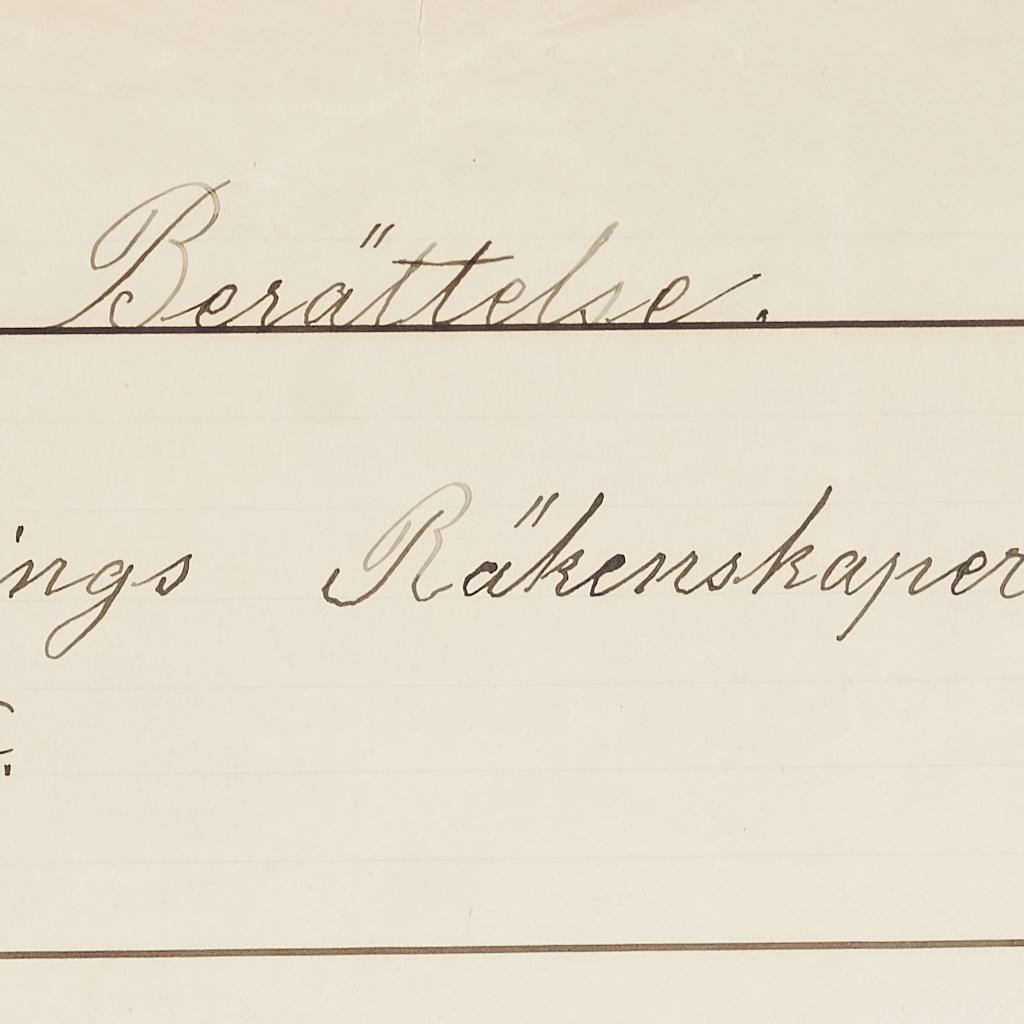 Berättelse.
ings Räkenskaper